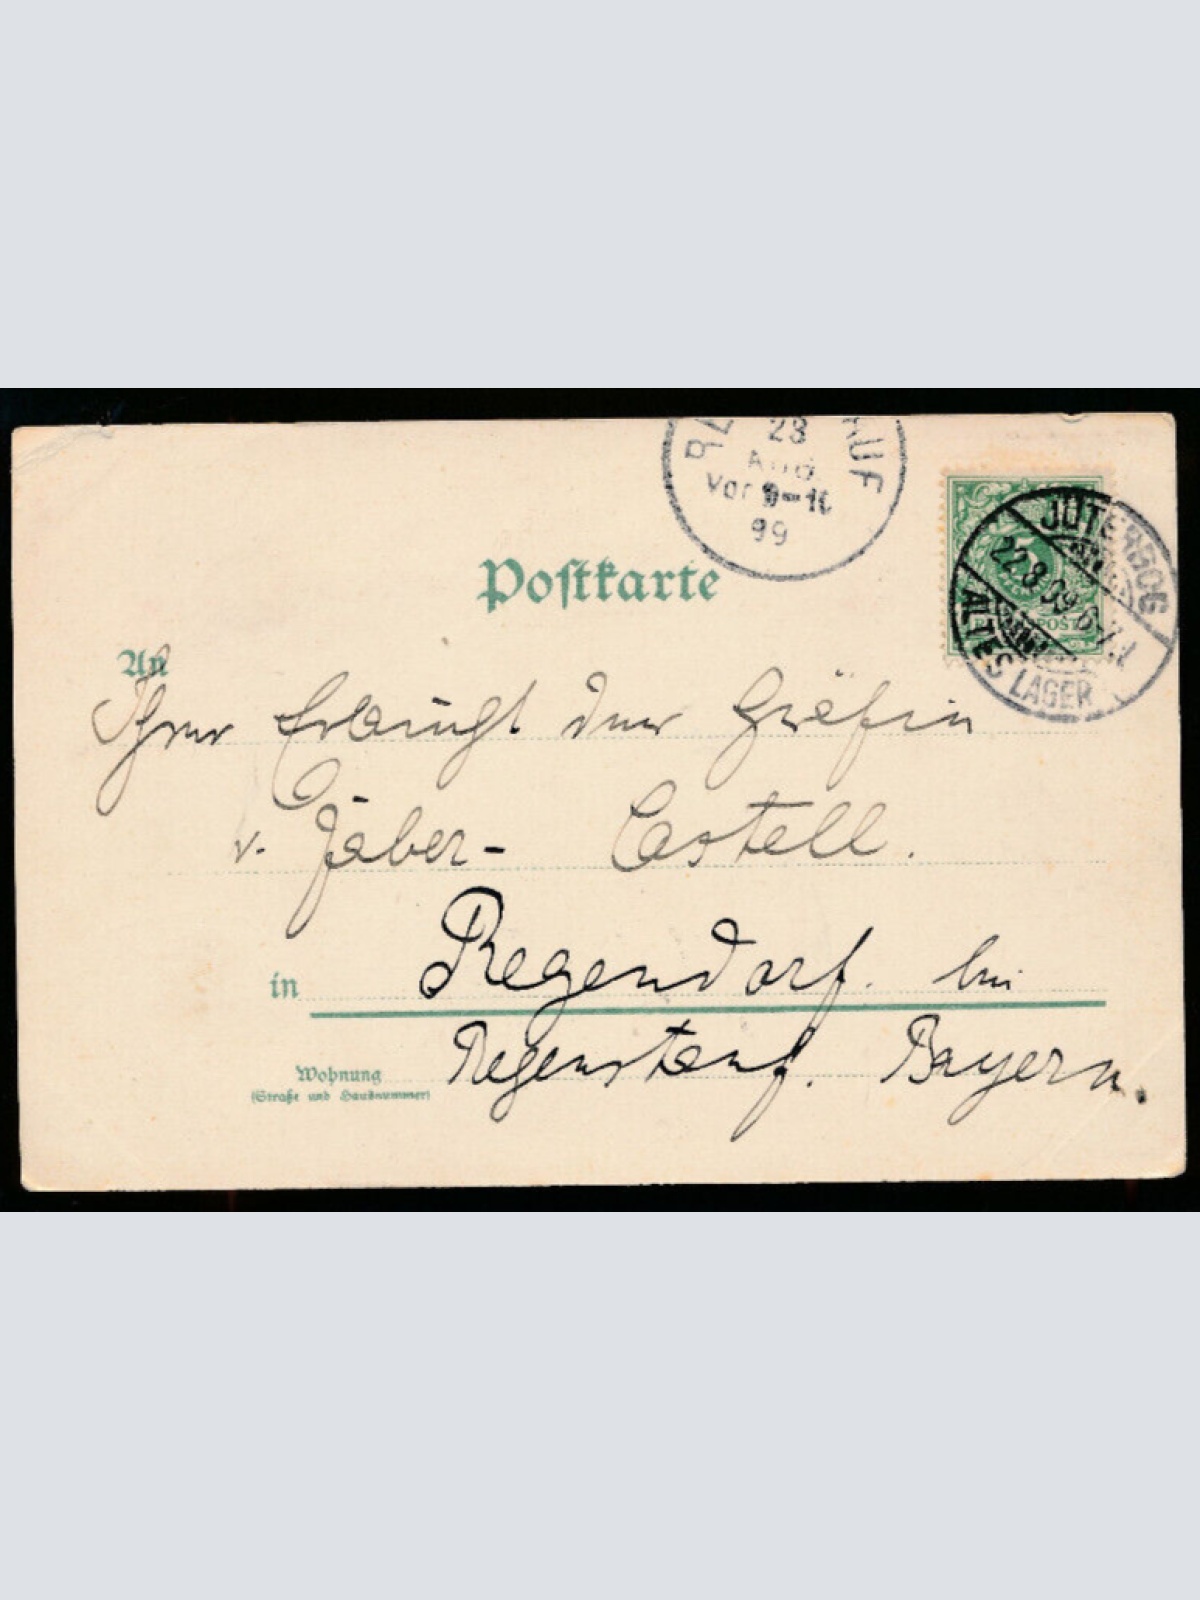 23
Aug
Vor 9-10
99
JÜTERBOG
22.8.99 6-7
ALTES LAGER
5
Postkarte
An
Ihrer Erlaucht der Gräfin
v. Castell.
in Regendorf. bei
Wohnung
(Straße und Hausnummer)
Regenstauf. Bayern.